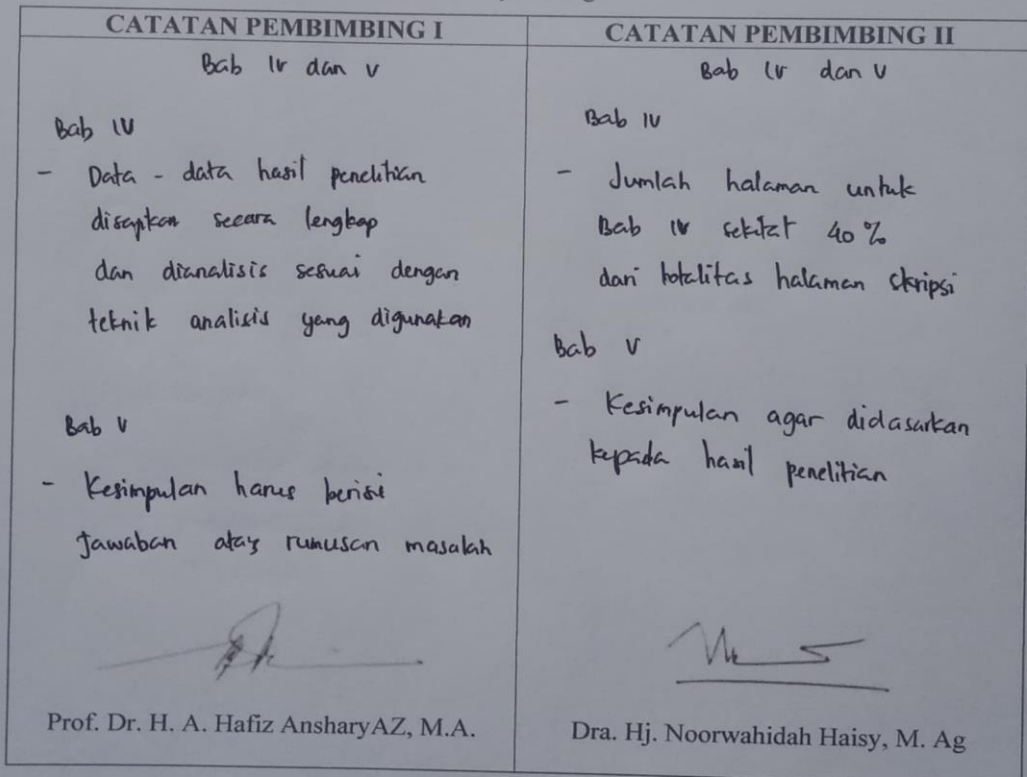 CATATAN PEMBIMBING I
Bab IV dan V
Bab IV
- Data - data hasil penelitian
disajikan secara lengkap
dan dianalisis sesuai dengan
teknik analisis yang digunakan
Bab V
- Kesimpulan harus berisi
Jawaban atas rumusan masalah
Prof. Dr. H. A. Hafiz AnsharyAZ, M.A.
CATATAN PEMBIMBING II
Bab IV dan V
Bab IV
- Jumlah halaman untuk
Bab IV sekitar 40%
dari totalitas halaman skripsi
Bab V
- Kesimpulan agar didasarkan
kepada hasil penelitian
Dra. Hj. Noorwahidah Haisy, M. Ag